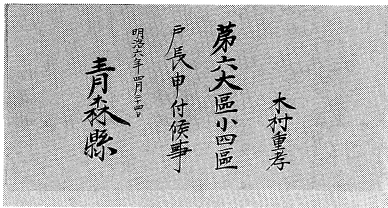 木村重孝
第六大區小四區
戸長申付候事
明治六年四月二十四日
青森縣